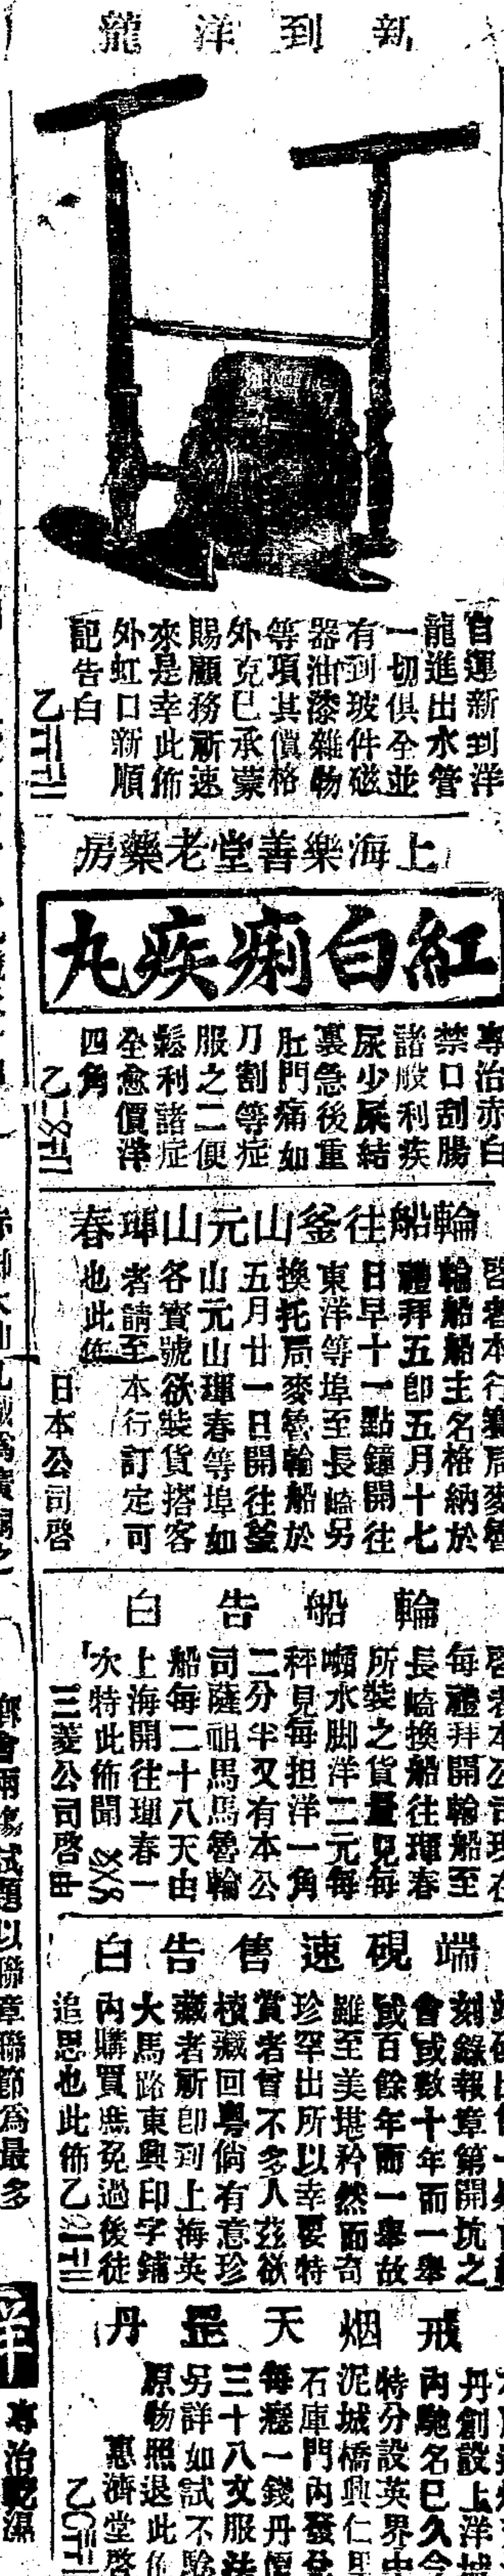 新到洋龍
自運新到洋
龍進出水管
一切俱全並
有到玻件磁
器油漆雜物
等項其價格
外克已承蒙
賜顧務祈速
來是幸此佈
外虹口新順
記告白
上海樂善堂老藥房
紅白痢疾丸
專治赤白
禁口刮腸
諸般利疾
尿少屎結
裏急後重
肛門痛如
刀割等症
服之二便
鬆利諸症
全愈價洋
四角
輪船往釜山元山琿春
啓者本行襄局麥魯
輪船船主名格納於
禮拜五卽五月十七
日早十一點鐘開往
東洋等埠至長崎另
換托局麥魯輪船於
五月廿一日開往釜
山元山琿春等埠如
各寳號欲裝貨搭客
者請至本行訂定可
也此佈
日本公司啓
輪船告白
啓者本公司現在
每禮拜開輪船至
長崎換船往琿春
所裝之貨量見每
噸水脚洋二元每
秤見每担洋一角
二分半又有本公
司薩祖馬馬魯輪
船每二十八天由
上海開往琿春一
次特此佈聞
三菱公司啓
端硯速售告白
刻錄報章第開坑之
會或數十年而一舉
或百餘年而一舉故
雖至美堪矜然而奇
珍罕出所以幸要特
賞者曾不多人茲欲
積藏回粵倘有意珍
藏者祈卽到上海英
大馬路東興印字鋪
內購買庶免過後徒
追思也此佈
戒烟天罡丹
丹創設上洋城
內馳名已久今
特分設英界中
泥城橋興仁里
石庫門內發兌
每癮一錢丹價
三十八文服法
另詳如試不騐
原物照退此佈
惠濟堂啓
以聯章聯節爲最多
專治乾濕